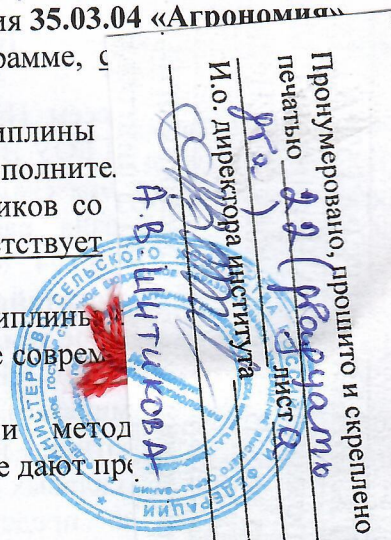 ия 35.03.04 «Агрономия»
рамме, с
иплины
сполните
иков со
етствует
иплины
е соврем
и метод
е дают пре
Пронумеровано, прошито и скреплено
печатью 22 (двадцать
два) листа
И.о. директора института
А.В. Шитикова
МИНИСТЕРСТВО СЕЛЬСКОГО ХОЗЯЙСТВА РОССИЙСКОЙ ФЕДЕРАЦИИ